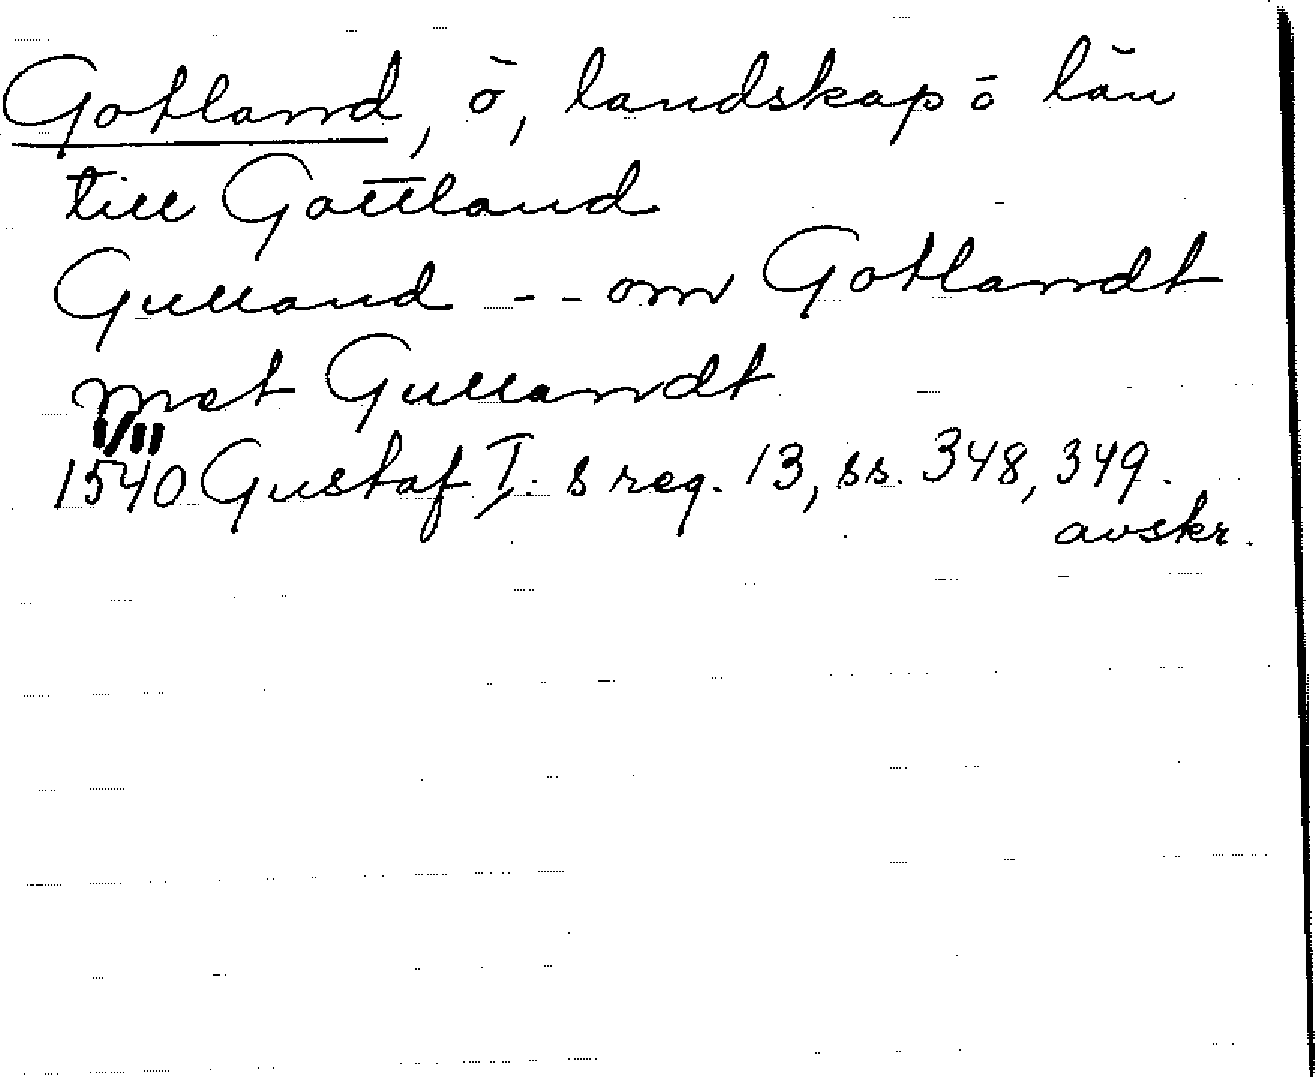 Gotland, ö, landskap o län
till Gottland
Gulland -- om Gotlandt
met Gullandt
1/11
1540 Gustaf I.s reg. 13, ss. 348, 349.
avskr.